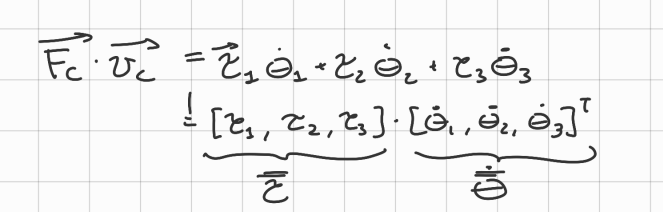 F⃗_c · v⃗_c = τ⃗_1 θ̇_1 + τ_2 θ̇_2 + τ_3 θ̇_3
= [τ_1, τ_2, τ_3] · [θ̇_1, θ̇_2, θ̇_3]^T
τ̅ θ̇̅